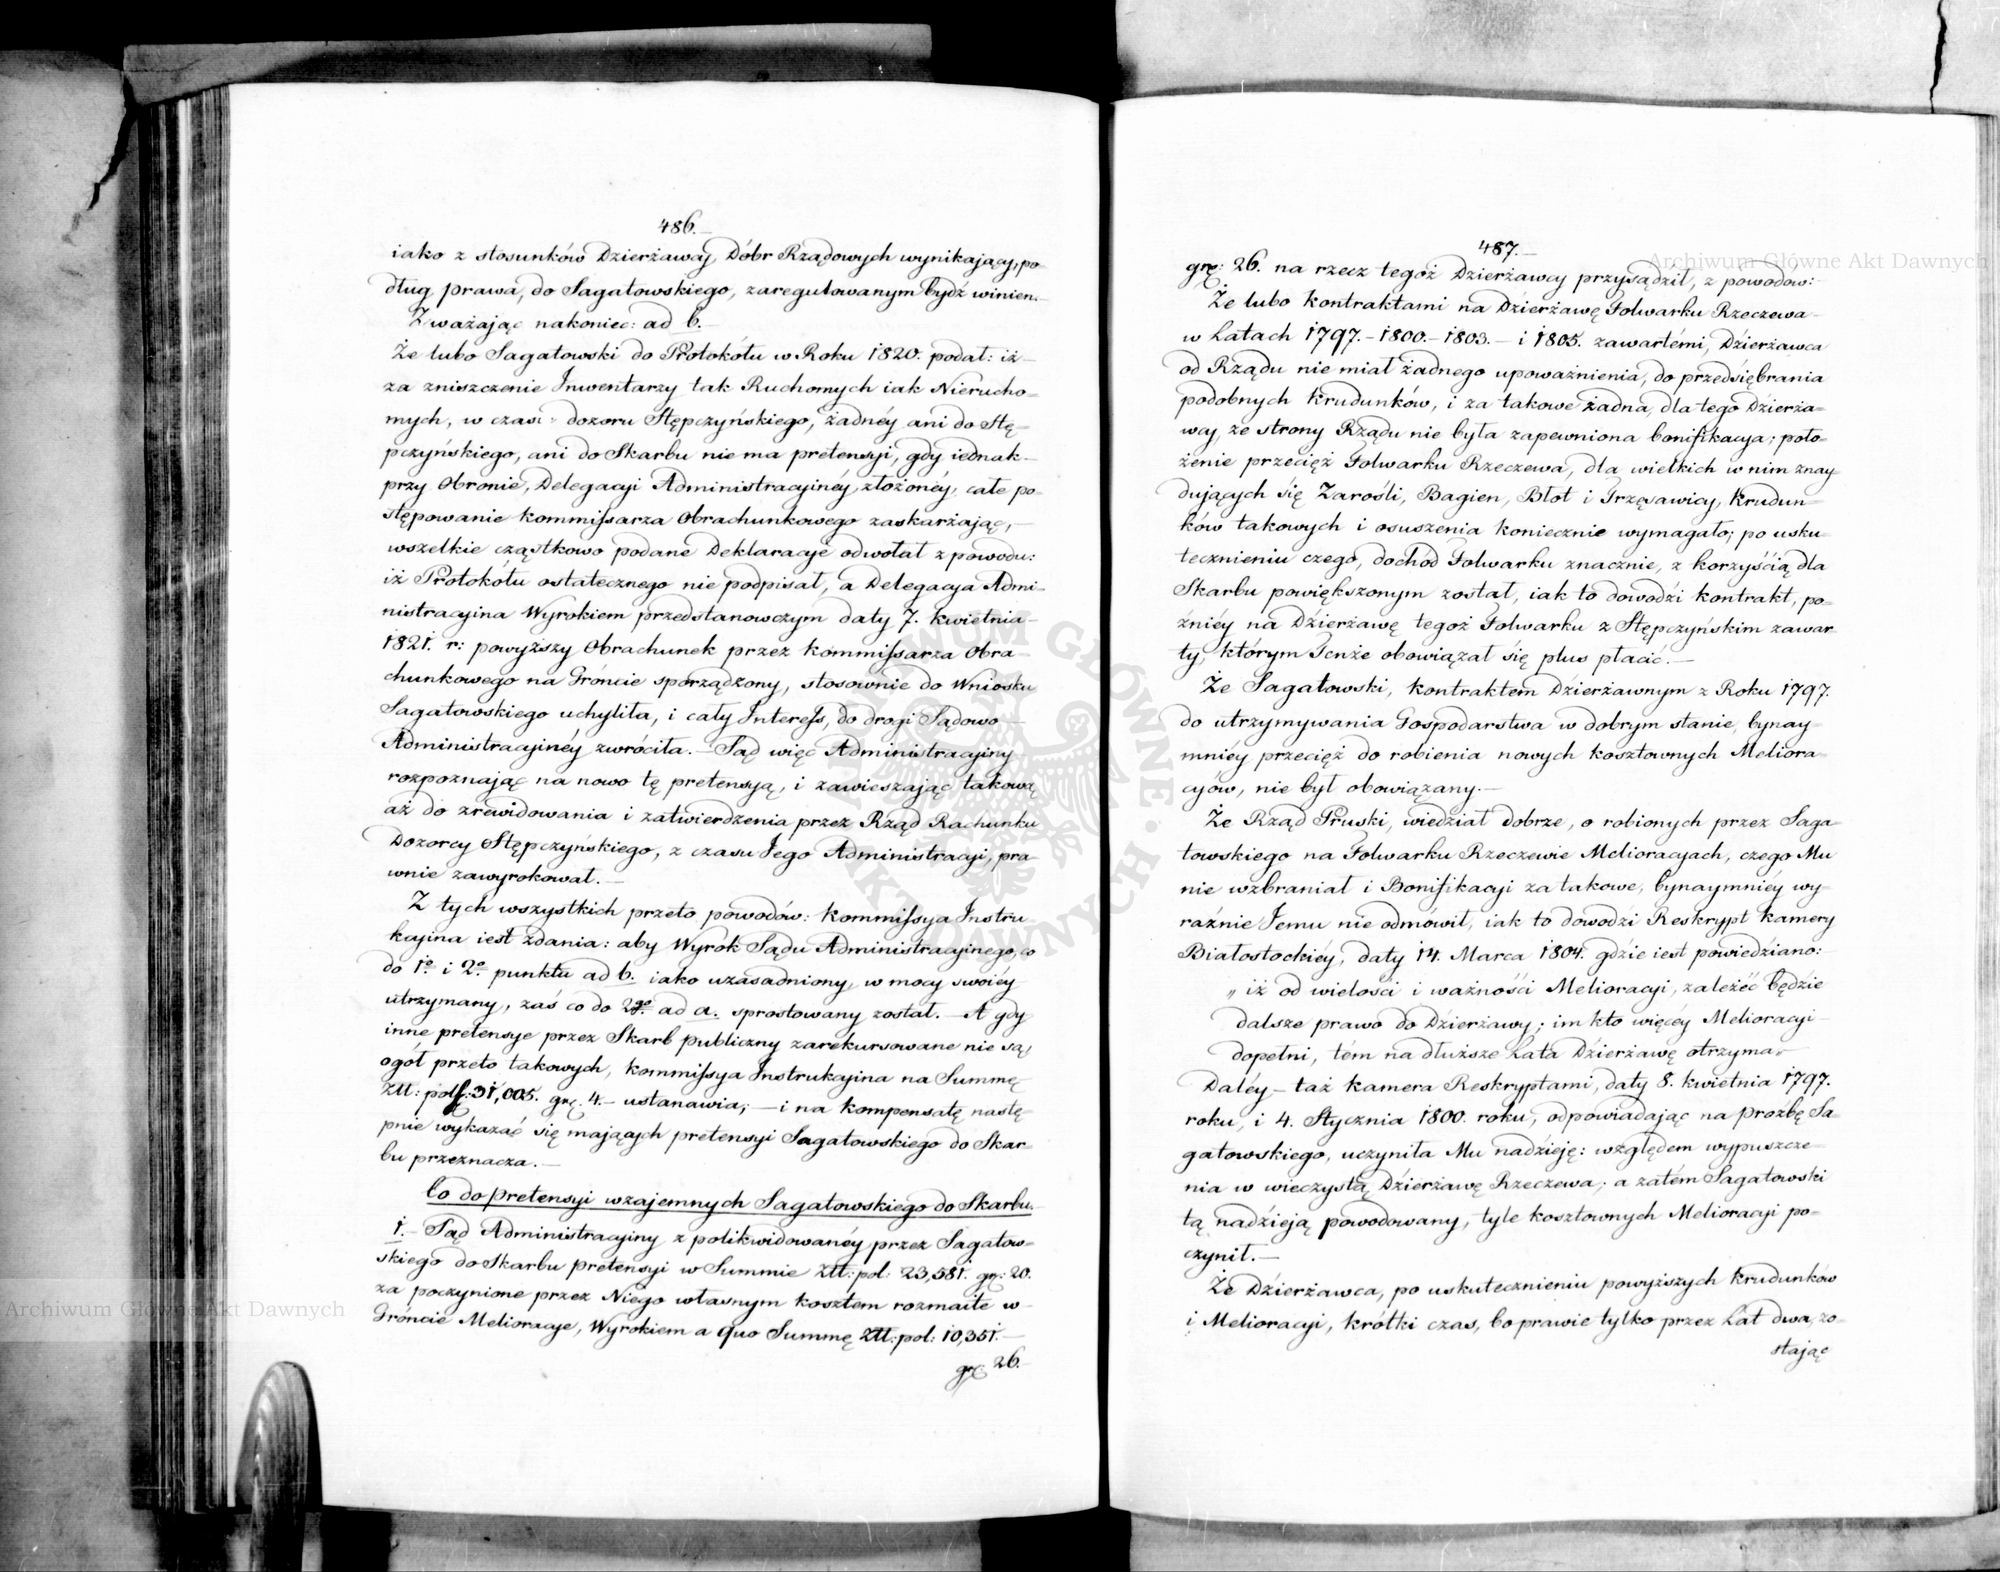 486.
iako z stosunków Dzierżawcy Dóbr Rządowych wynikający, po-
dług prawa, do Sagatowskiego, zaregulowanym bydź winien.
Zważając nakoniec: ad b.
Że lubo Sagatowski do Protokółu w Roku 1820. podał: iż
za zniszczenie Inwentarzy tak Ruchomych iak Nierucho-
mych, w czasie dozoru Stępczyńskiego, żadnéy ani do Stę-
pczyńskiego, ani do Skarbu nie ma pretensyi, gdy iednak
przy Obronie, Delegacyi Administracyinéy złożonéy, całe po-
stępowanie Kommissarza Obrachunkowego zaskarżając,
wszelkie cząstkowo podane Deklaracye odwołał z powodu:
iż Protokółu ostatecznego nie podpisał, a Delegacya Admi-
nistracyina Wyrokiem przedstanowczym daty 7. Kwietnia
1821. r: powyższy Obrachunek przez Kommissarza Obra-
chunkowego na Gróncie sporządzony, stosownie do Wniosku
Sagatowskiego uchyliła, i cały Interess, do drogi Sądowo
Administracyinéy zwróciła.— Sąd więc Administracyiny
rozpoznając na nowo tę pretensyą, i zawieszając takową
aż do zrewidowania i zatwierdzenia przez Rząd Rachunku
Dozorcy Stępczyńskiego, z czasu Jego Administracyi, pra-
wnie zawyrokował.—
Z tych wszystkich przeto powodów: Kommissya Instru
kcyina iest zdania: aby Wyrok Sądu Administracyinego, co
do 1o. i 2o. punktu ad b. iako uzasadniony, w mocy swoiéy
utrzymany, zaś co do 2go. ad a. sprostowany został.— A gdy
inne pretensye przez Skarb publiczny zarekursowane nie są,
ogół przeto takowych, Kommissya Instrukcyina na Summę
Złł: pol: 31,005. gr: 4.— ustanawia;— i na kompensatę nastę-
pnie wykazać się mających pretensyi Sagatowskiego do Skar-
bu przeznacza.—
Co do pretensyi wzajemnych Sagatowskiego do Skarbu.
1.— Sąd Administracyiny z polikwidowanéy przez Sagatow-
skiego do Skarbu pretensyi w Summie Złł: pol: 23,581. gr: 20.
za poczynione przez Niego własnym kosztem rozmaite w
Gróncie Melioracye, Wyrokiem a quo Summę Złł: pol: 10,351.—
gr: 26.
487.
gr: 26. na rzecz tegoż Dzierżawcy przysądził, z powodów:
Że lubo Kontraktami na Dzierżawę Folwarku Rzeczewa
w Latach 1797.- 1800.- 1803.- i 1805. zawartémi, Dzierżawca
od Rządu nie miał żadnego upoważnienia, do przedsiębrania
podobnych Krudunków, i za takowe żadna, dla tego Dzierża-
wcy, ze strony Rządu nie była zapewniona bonifikacya; poło-
żenie przecięż Folwarku Rzeczewa, dla wielkich w nim znay-
dujących się Zarośli, Bagien, Błot i Trzęsawicy, Krudun-
ków takowych i osuszenia koniecznie wymagało; po usku-
tecznieniu czego, dochod Folwarku znacznie, z korzyścią dla
Skarbu powiększonym został, iak to dowodzi kontrakt, po-
źniéy na Dzierżawę tegoż Folwarku z Stępczyńskim zawar-
ty, którym Tenże obowiązał się plus płacić.—
Że Sagatowski, Kontraktem Dzierżawnym z Roku 1797.
do utrzymywania Gospodarstwa w dobrym stanie, bynay-
mniéy przecięż do robienia nowych kosztownych Meliora-
cyów, nie był obowiązany.—
Że Rząd Pruski, wiedział dobrze, o robionych przez Saga-
towskiego na Folwarku Rzeczewie Melioracyach, czego Mu
nie wzbraniał i Bonifikacyi za takowe, bynaymniéy wy-
raźnie Jemu nie odmówił, iak to dowodzi Reskrypt Kamery
Białostockiéy, daty 14. Marca 1804. gdzie iest powiedziano:
„ iż od wielości i ważności Melioracyi, zależéć będzie
dalsze prawo do Dzierżawy; im kto więcéy Melioracyi
dopełni, tém na dłuższe Lata Dzierżawę otrzyma.
Daléy— taż Kamera Reskryptami, daty 8. Kwietnia 1797.
roku, i 4. Stycznia 1800. roku, odpowiadając na proźbę Sa-
gatowskiego, uczyniła Mu nadzieję: względem wypuszcze-
nia w wieczystą Dzierżawę Rzeczewa; a zatém Sagatowski
tą nadzieją powodowany, tyle kosztownych Melioracyi po-
czynił.—
Że Dzierżawca, po uskutecznieniu powyższych Krudunków
i Melioracyi, krótki czas, bo prawie tylko przez Lat dwa, zo-
stając
Archiwum Główne Akt Dawnych
Archiwum Główne Akt Dawnych
ARCHIWUM GŁÓWNE AKT DAWNYCH